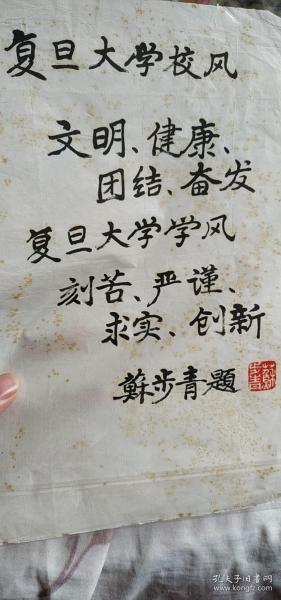 复旦大学校风
文明、健康、
团结、奋发
复旦大学学风
刻苦、严谨、
求实、创新
蘇步青題
孔夫子旧书网
www.kongfz.com